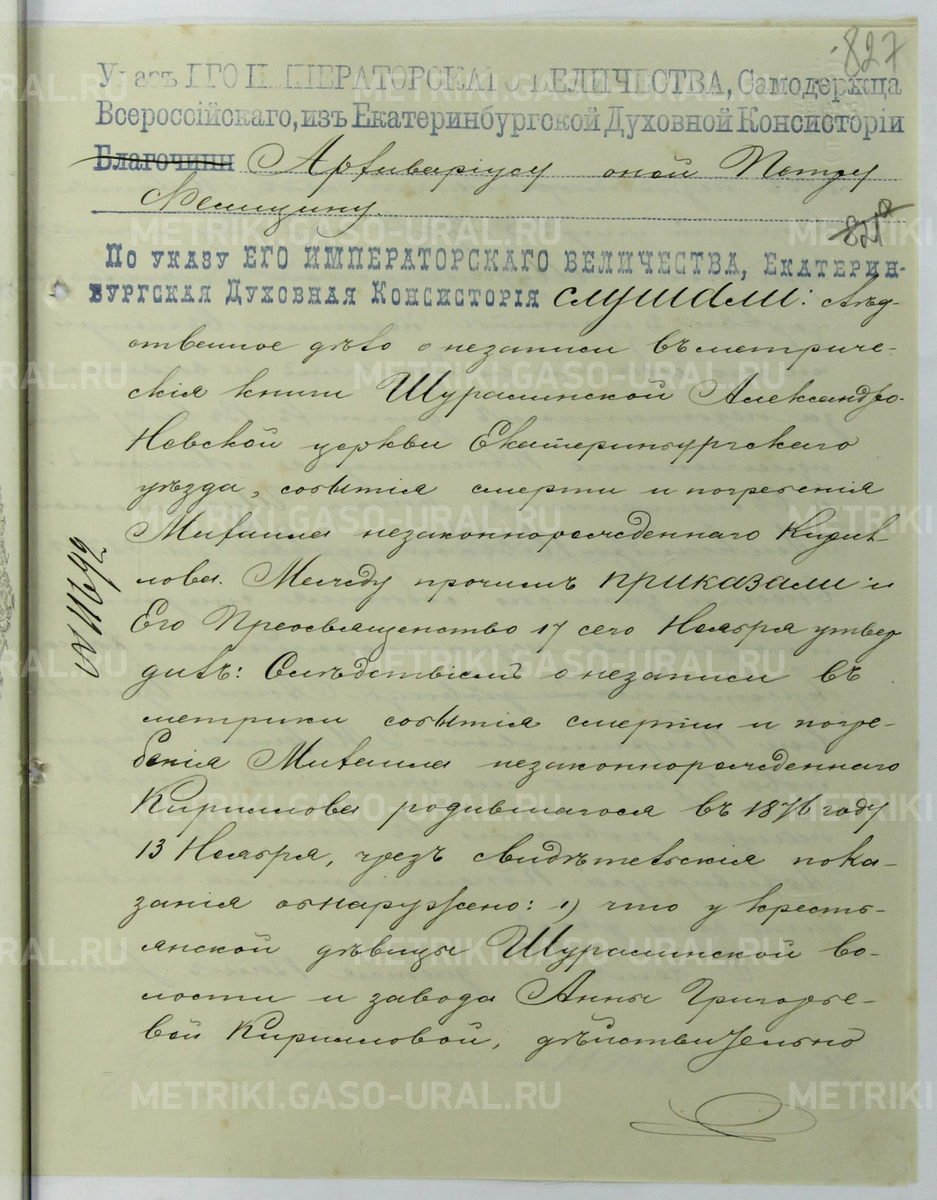 827
Указъ ЕГО ИМПЕРАТОРСКАГО ВЕЛИЧЕСТВА, Самодержца
Всероссійскаго, изъ Екатеринбургской Духовной Консисторіи
Благочинн Архиваріусу оной Петру
821
По указу ЕГО ИМПЕРАТОРСКАГО ВЕЛИЧЕСТВА, Екатерин-
бургская Духовная Консисторія слушали: Слѣд-
ственное дѣло о незаписи въ метриче-
скія книги Шуралинской Александро-
Невской церкви Екатеринбургскаго
уѣзда, событія смерти и погребенія
Михаила незаконнорожденнаго Кирил-
лова. Между прочимъ приказали и
Его Преосвященство 17 сего Ноября утвер
дилъ: Слѣдствіемъ о незаписи въ
метрики событія смерти и погре-
бенія Михаила незаконнорожденнаго
Кириллова родившагося въ 1876 году
13 Ноября, чрезъ свидѣтельскія пока-
занія обнаружено: 1) что у кресть-
янской дѣвицы Шуралинской во-
лости и завода Анны Григорье-
вой Кирилловой, дѣйствительно
METRIKI.GASO-URAL.RU